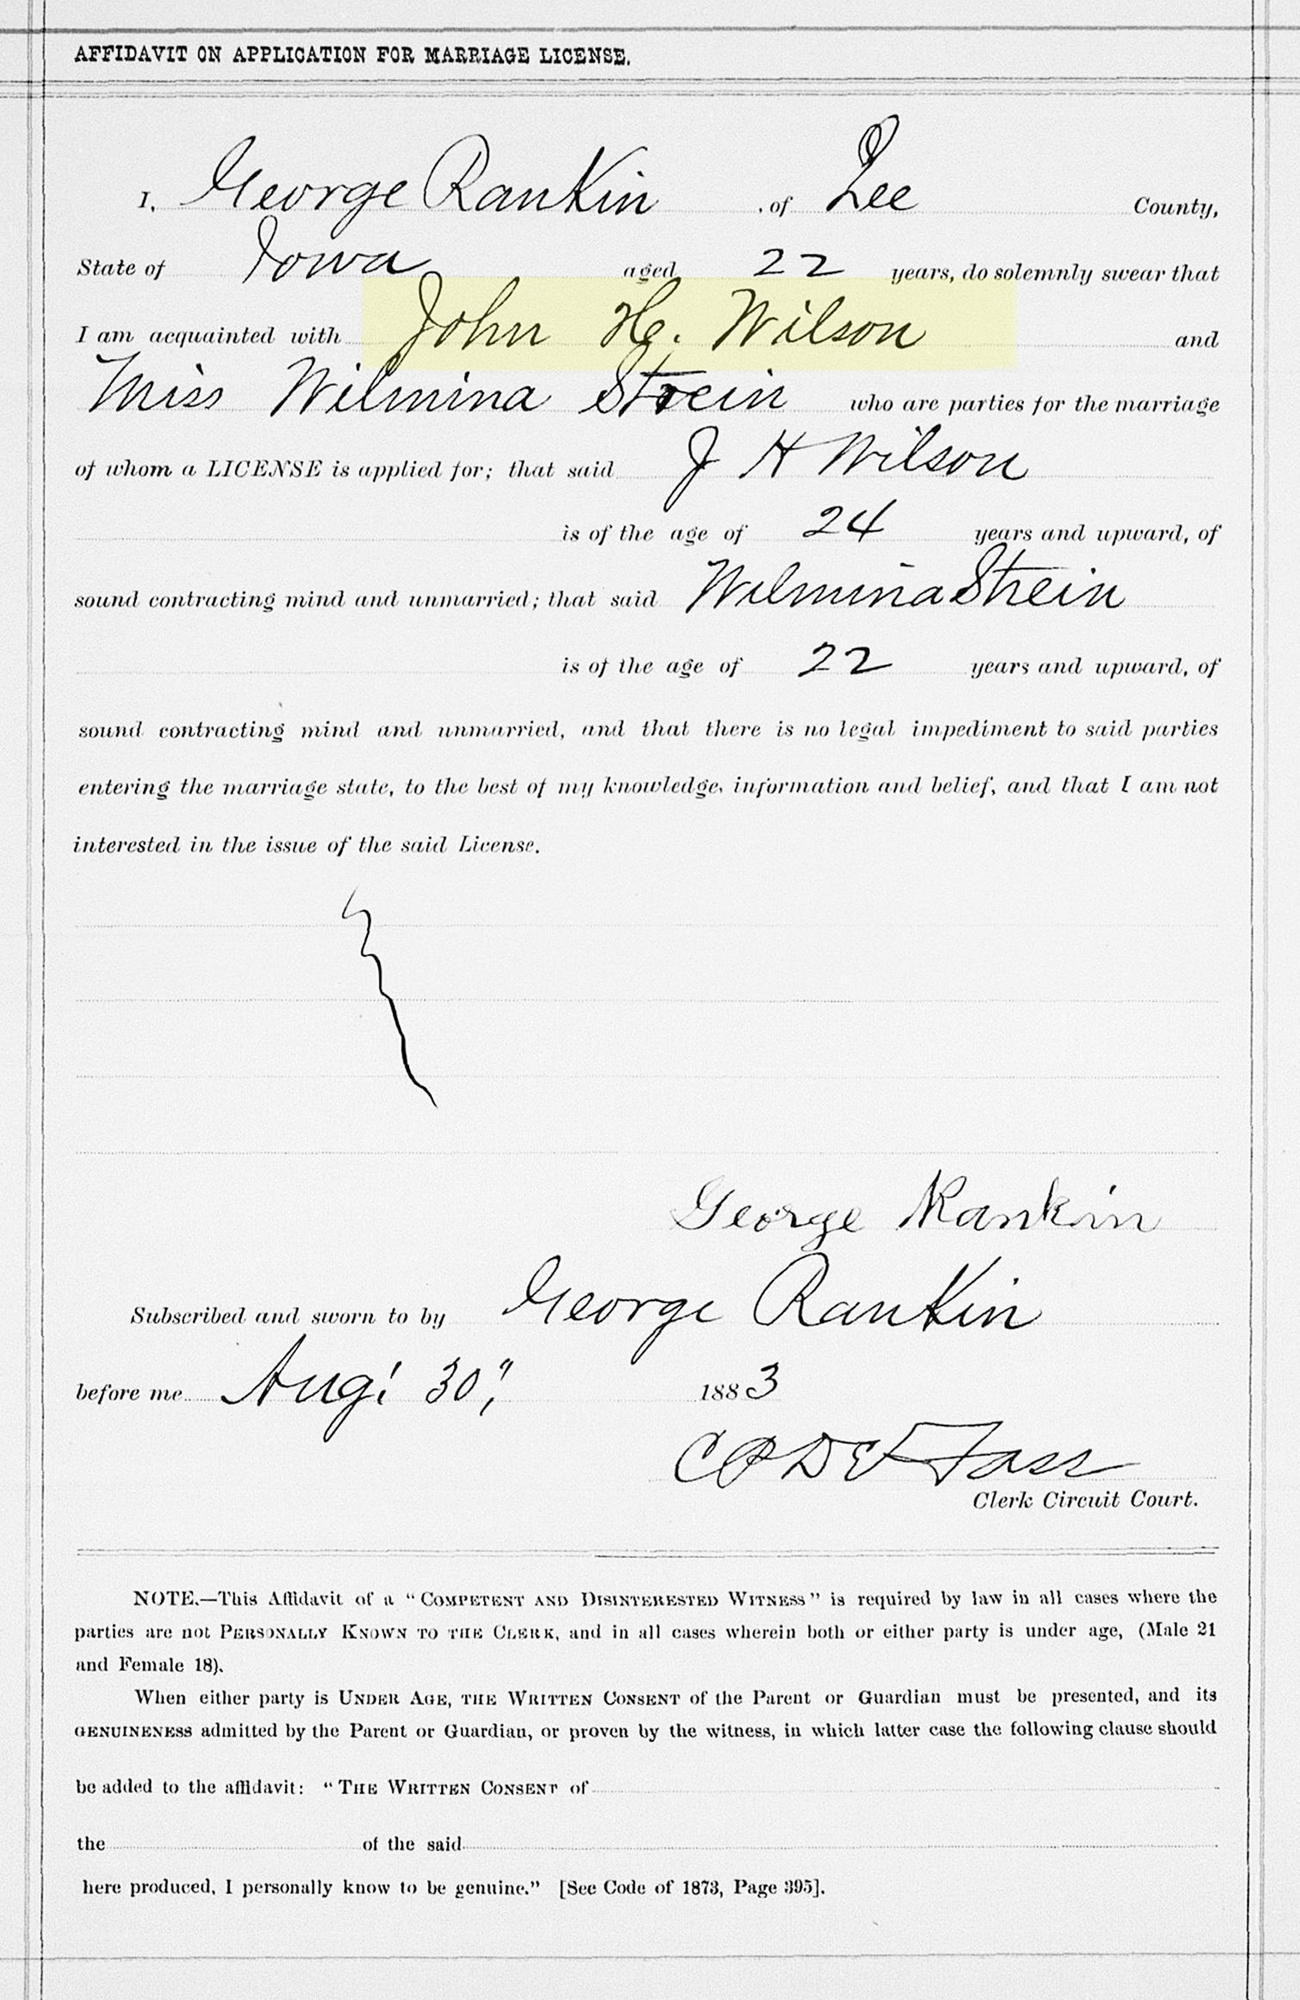 AFFIDAVIT ON APPLICATION FOR MARRIAGE LICENSE.
I, George Rankin , of Lee County,
State of Iowa aged 22 years, do solemnly swear that
I am acquainted with John H. Wilson and
Miss Wilmina Strein who are parties for the marriage
of whom a LICENSE is applied for; that said J H Wilson
is of the age of 24 years and upward, of
sound contracting mind and unmarried; that said Wilmina Strein
is of the age of 22 years and upward, of
sound contracting mind and unmarried, and that there is no legal impediment to said parties
entering the marriage state, to the best of my knowledge, information and belief, and that I am not
interested in the issue of the said License.
George Rankin
Subscribed and sworn to by George Rankin
before me Aug: 30", 1883
Clerk Circuit Court.
NOTE.—This Affidavit of a "COMPETENT AND DISINTERESTED WITNESS" is required by law in all cases where the
parties are not PERSONALLY KNOWN TO THE CLERK, and in all cases wherein both or either party is under age, (Male 21
and Female 18).
When either party is UNDER AGE, THE WRITTEN CONSENT of the Parent or Guardian must be presented, and its
GENUINENESS admitted by the Parent or Guardian, or proven by the witness, in which latter case the following clause should
be added to the affidavit: "THE WRITTEN CONSENT of
the of the said
here produced, I personally know to be genuine." [See Code of 1873, Page 395].